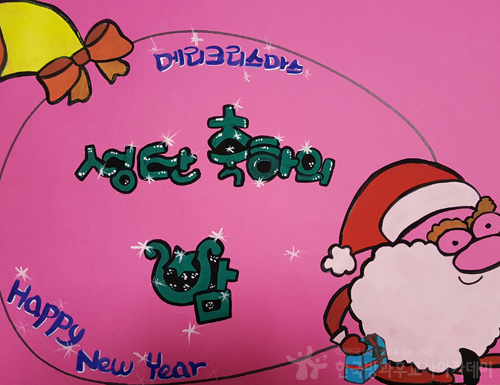 메리크리스마스
성탄 축하의
밤
Happy
New Year